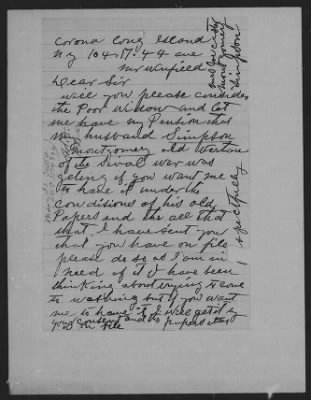 Corona Long Island
Ny 104-17-44 ave
Mr Winfield
Dear Sir
will you please consider
the Poor Widow and let
me have my Pension that
my husband Simpson
Montgomery old Vertian
of the Sival war was
geting if you want me
to have it under the
conditisions of his old
Papers and the all that
that I have sent you
that you have on file
please do so as I am in
need of it I have been
thinking about trying to come
to washing but if you want
me to have it I will get it by
your consent and the papers
on file
Respectfully
Simpson